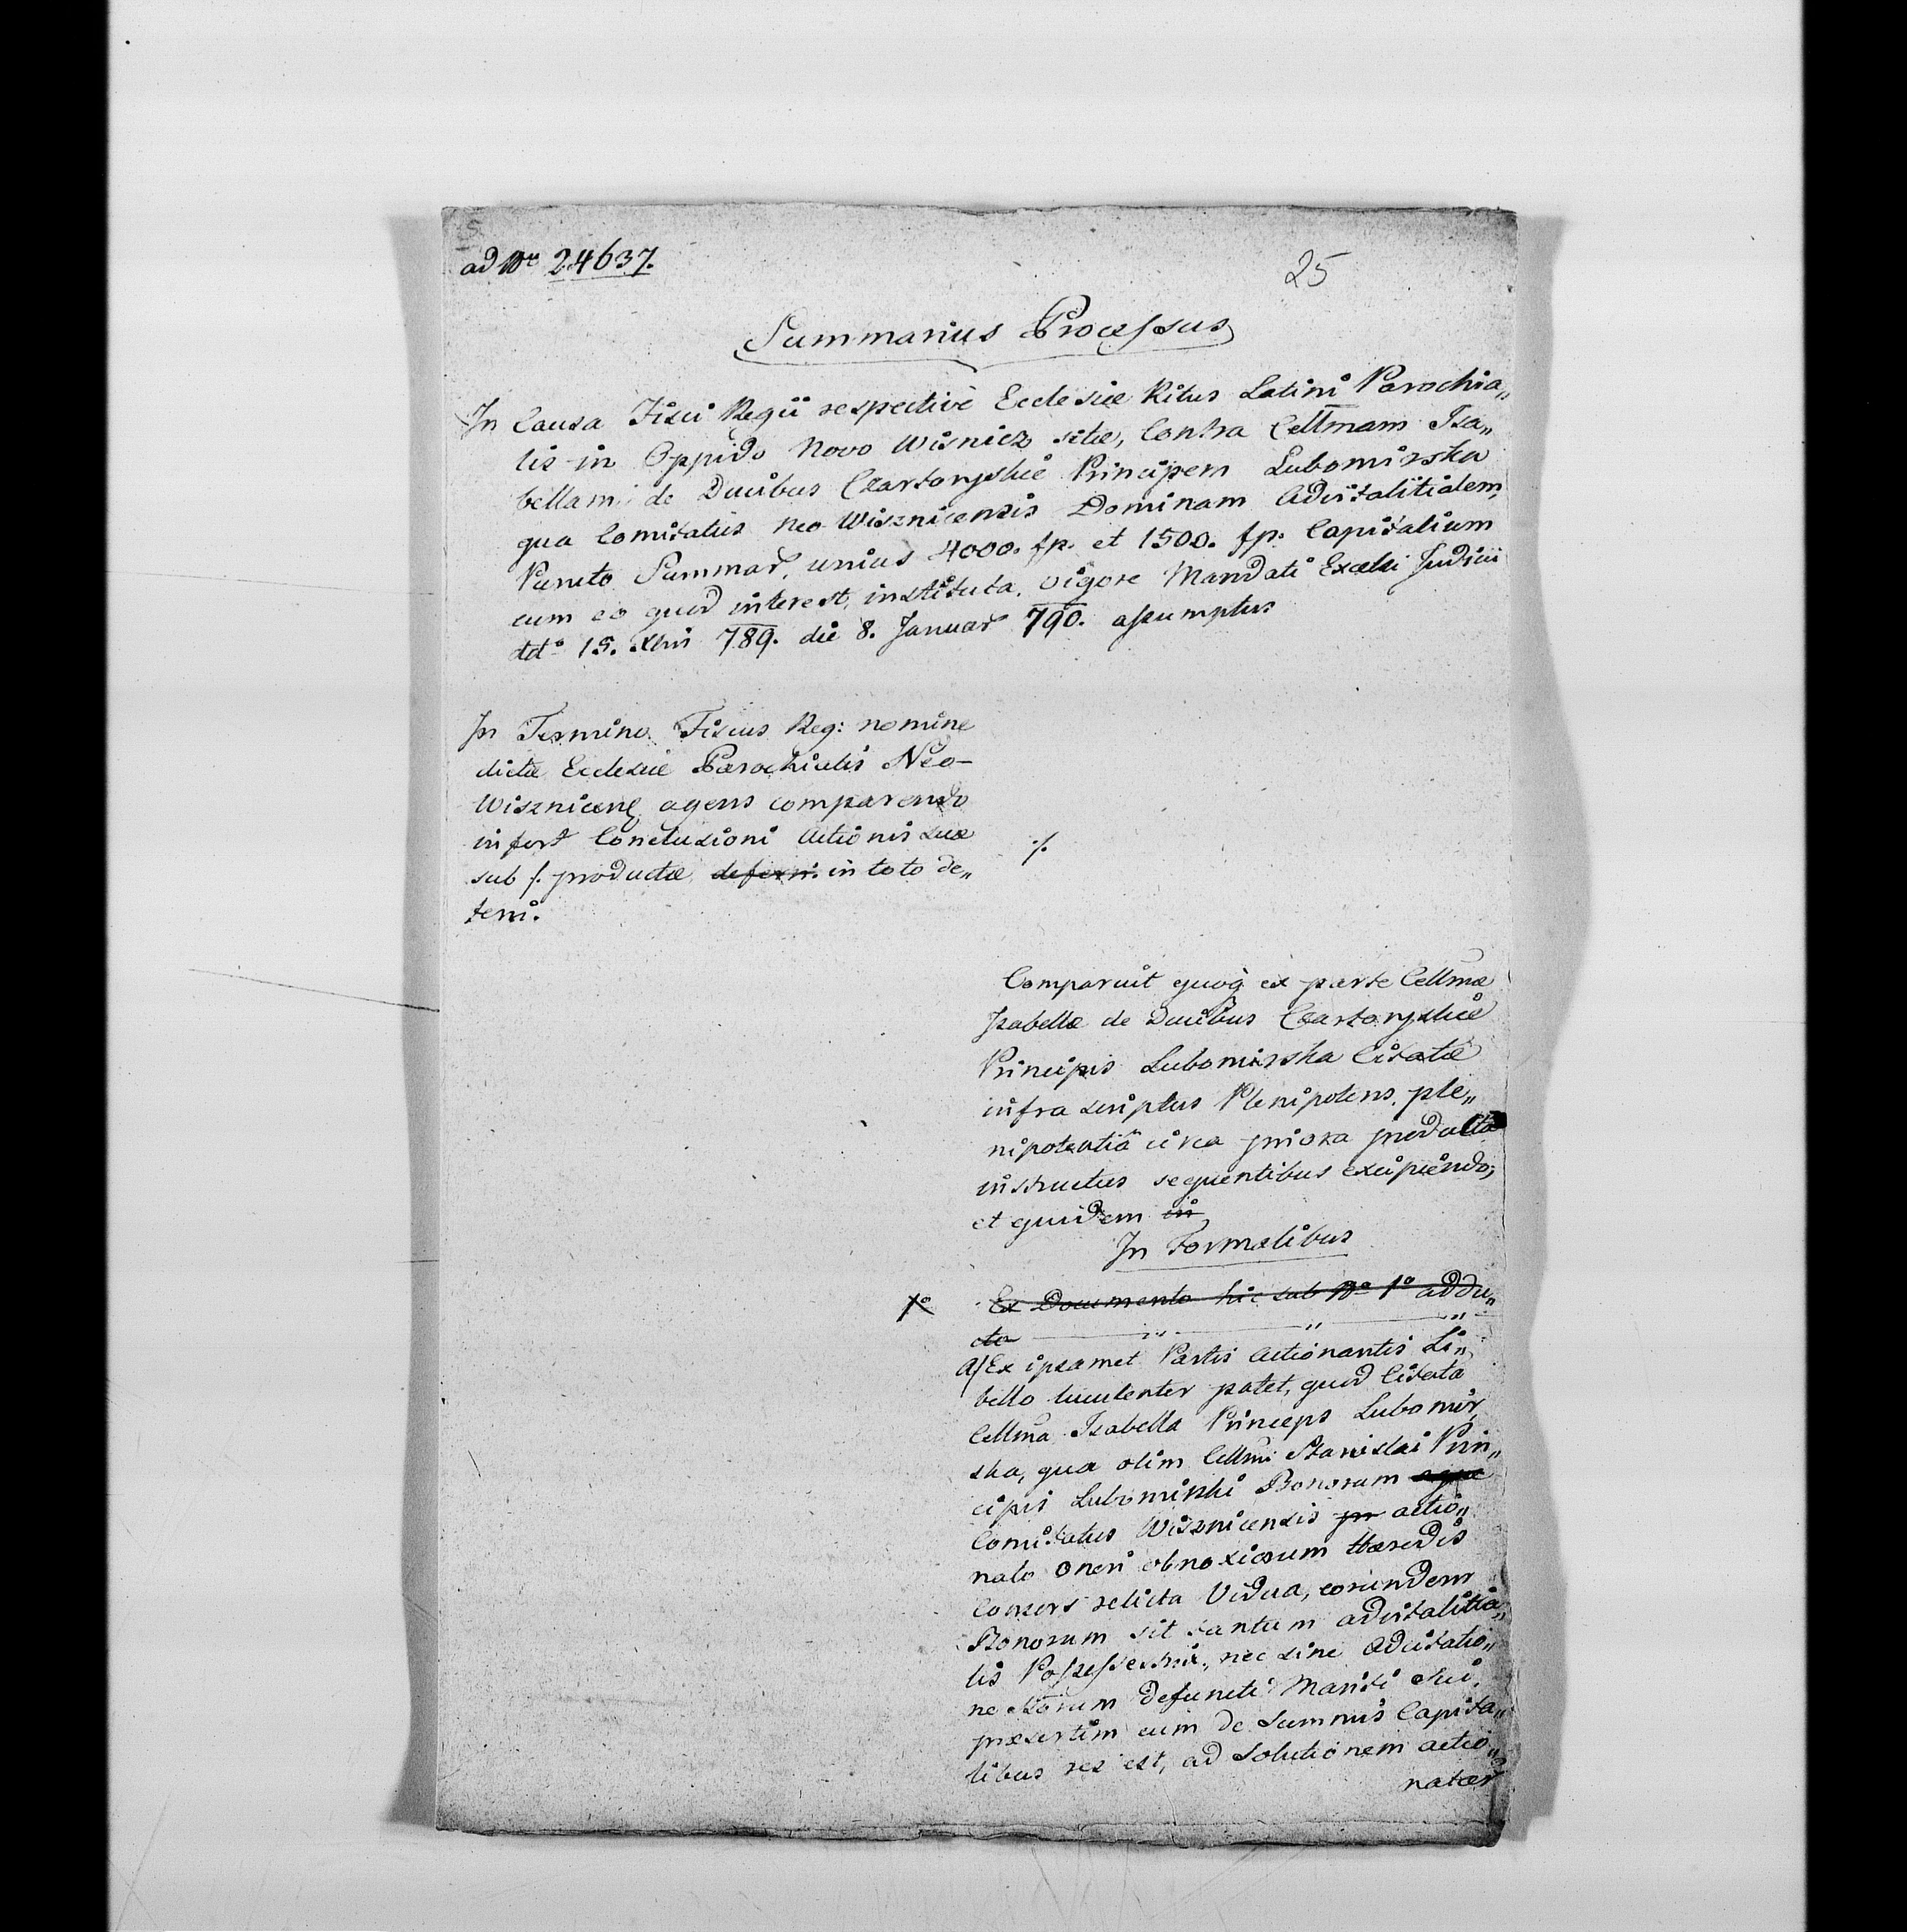 ad Nr 24637.
25
Summarius Processus
In Causa Fisci Regii respective Ecclesiæ Ritus Latini Parochia„
lis in Oppido Novo Wisnicz sitæ, Contra Cellmam Isa„
bellam de Ducibus Czartoryskie Principem Lubomirska
qua Comitatus Neo Wisznicensis Dominam Advitalitialem,
Puncto Summar. unius 4000. fp. et 1500. fp. Capitalium
cum eo quod interest, instituta, vigore Mandati Excelsi Judicii
ddto 15. Xbris 789. die 8. Januar 790. assumptus
In Termino Fiscus Reg: nomine
dictæ Ecclesiæ Parochialis Neo-
Wisznicens agens comparendo
infert Conclusioni Actionis suæ
sub /. productæ deferri in toto de„
feri.
·/.
Comparuit quoq ex parte Cellmæ
Isabellæ de Ducibus Czartoryskie
Principis Lubomirska Citatæ
infra scriptus Plenipotens, ple„
nipotentiâ circa priora producta
instructus sequentibus excipiendo,
et quidem in
In Formalibus
1o Ex Documento hic sub No 1o addu„
cto
a/ Ex ipsamet Partis Actionantis Li„
bello luculenter patet, quod Citata
Cellma Isabella Princeps Lubomir„
ska, qua olim Cellmi Stanislai Prin„
cipis Lubomirski Bonorum
Comitatus Wisznicensis pr actio„
nato oneri obnoxiorum Hæredis
Consors relicta Vidua, eorundem
Bonorum sit tantum advitalitia„
lis Possessrix, nec sine Advitatio„
ne Hærum defuncti Mariti sui,
præsertim cum de Summis Capita„
libus res est, ad Solutionem actio„
natar